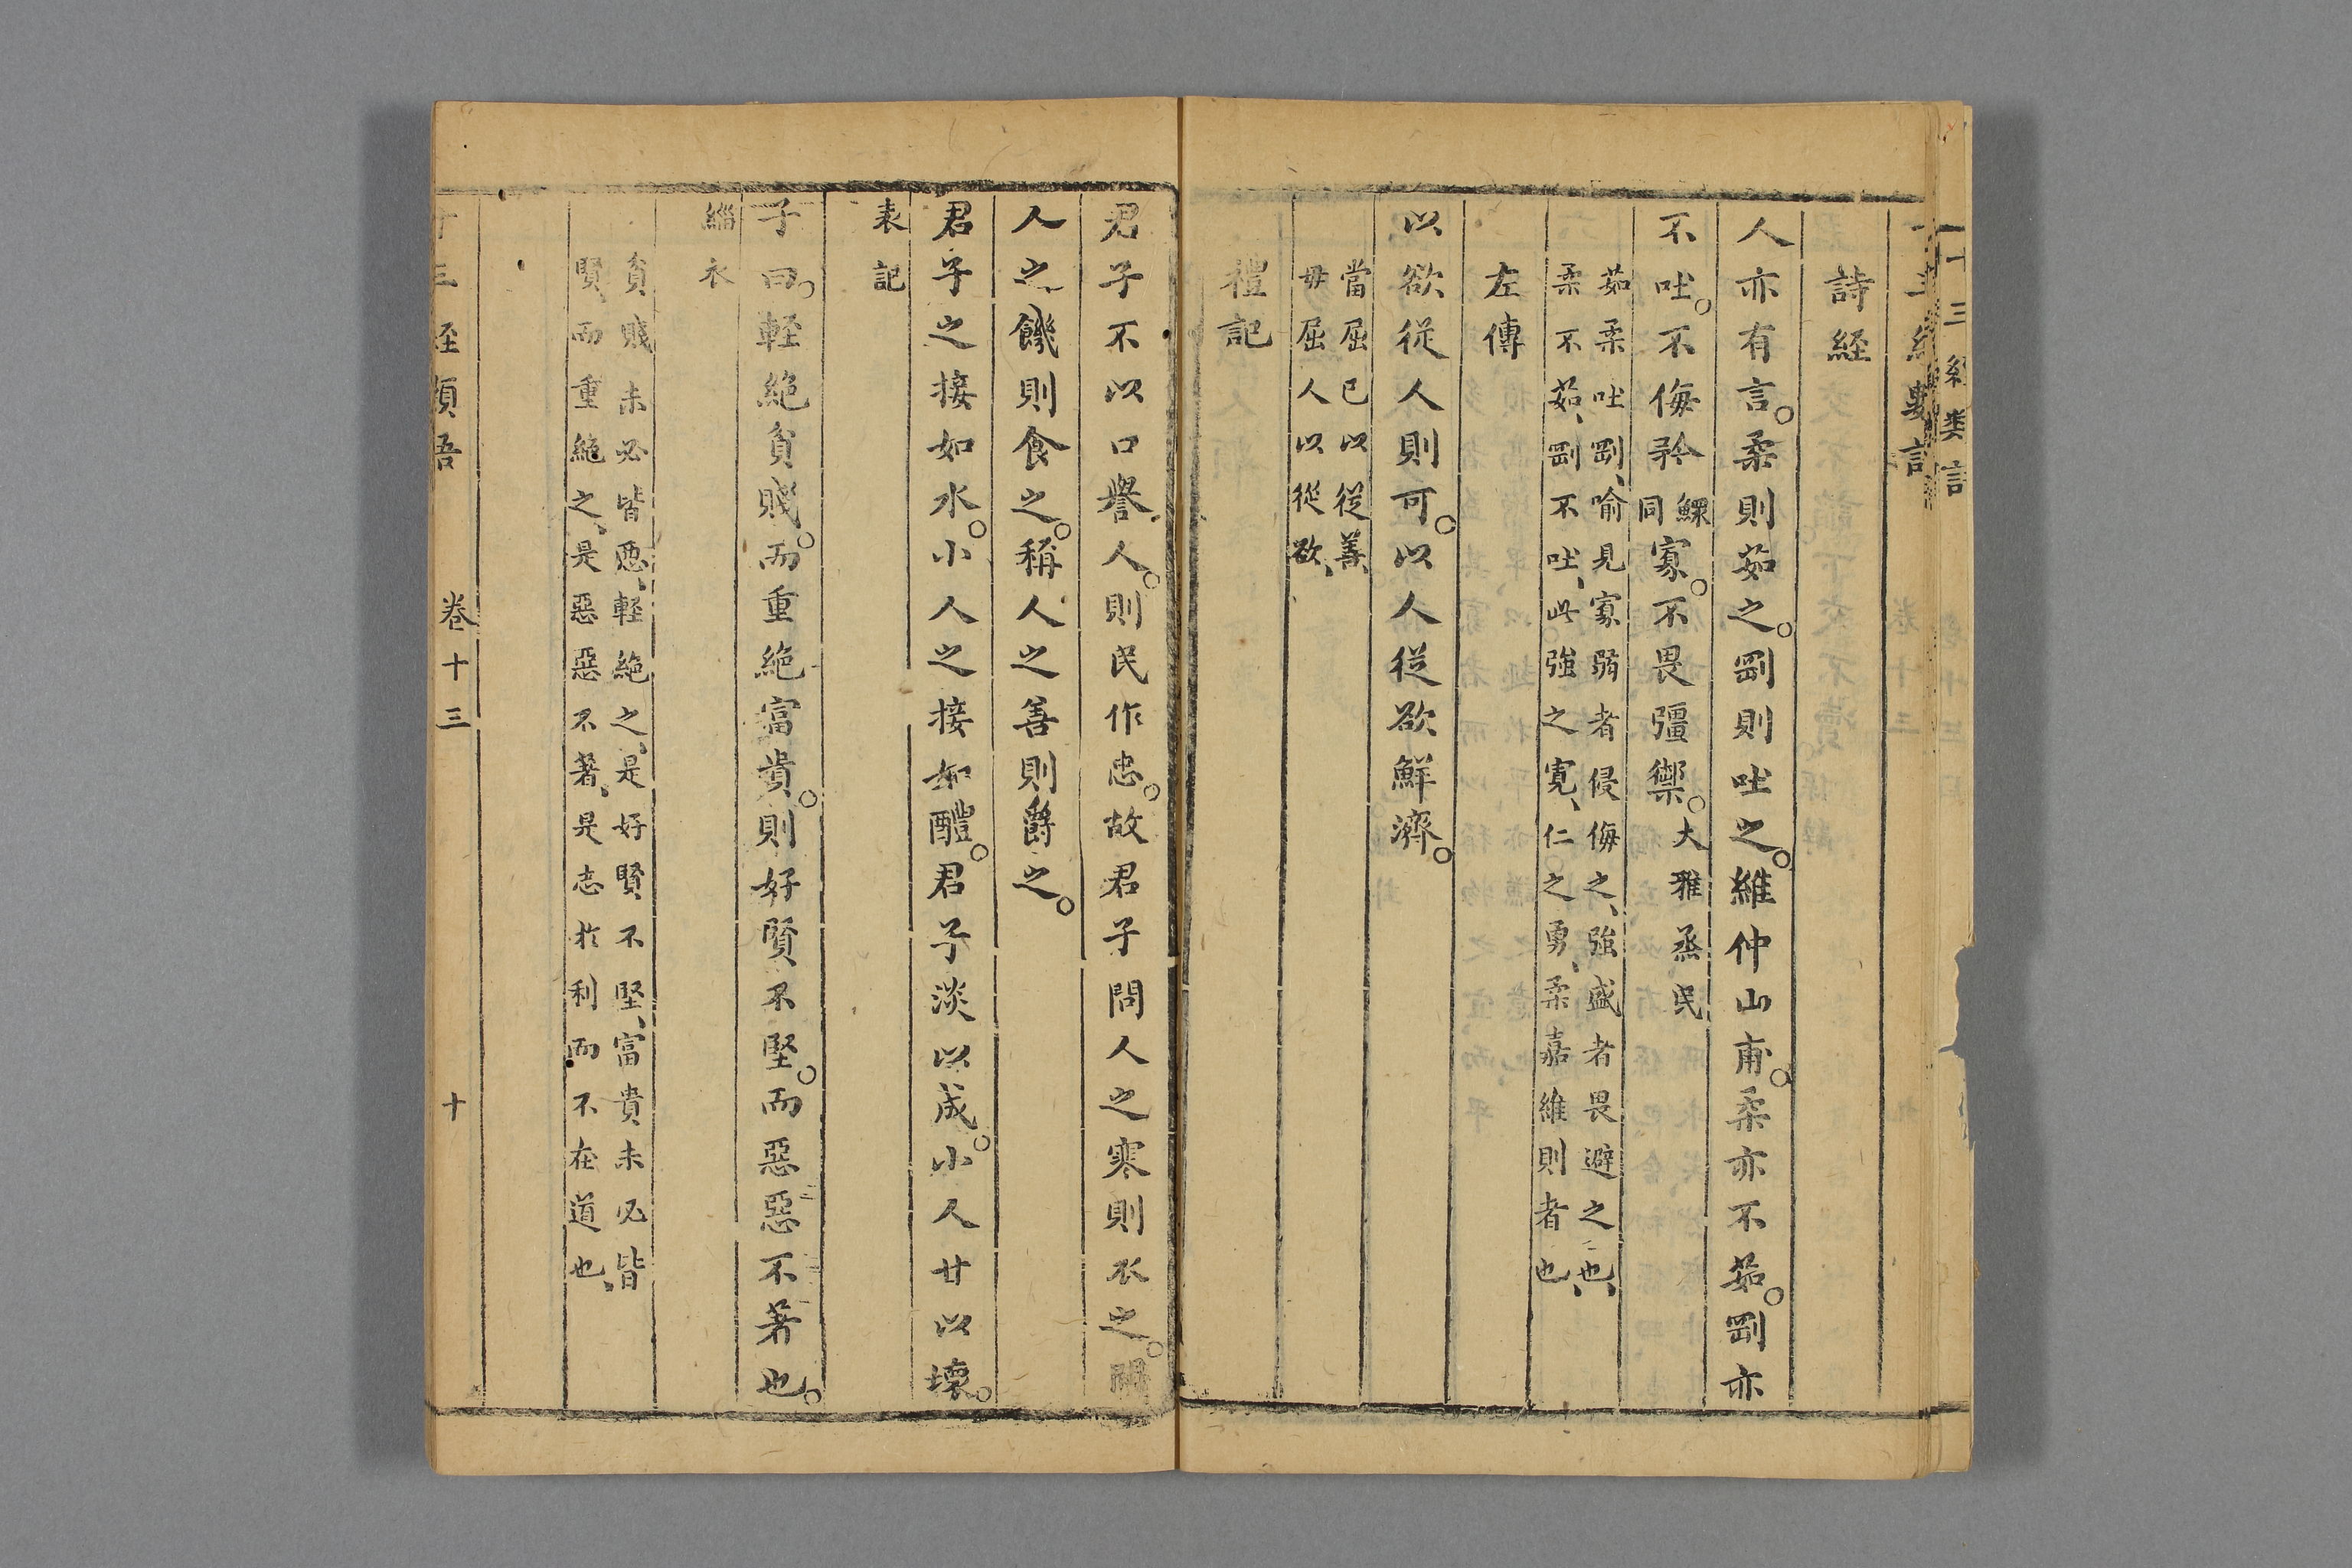 十三經類語
詩経
人亦有言。柔則茹之。剛則吐之。維仲山甫。柔亦不茹。剛亦
不吐。不侮矜鰥同寡。不畏彊禦。大雅烝民
茹柔吐剛、喻見寡弱者侵侮之、強盛者畏避之也、
柔不茹、剛不吐、此強之寛、仁之勇、柔嘉維則者也
左傳
以欲從人則可。以人從欲鮮濟。
當屈已以從善、
毋屈人以從欲、
禮記
君子不以口譽人。則民作忠。故君子問人之寒則衣之。問
人之饑則食之。稱人之善則爵之。
君子之接如水。小人之接如醴。君子淡以成。小人甘以壞。
表記
子曰。軽絶貧賤。而重絶富貴。則好賢不堅。而惡惡不著也。
緇衣
貧賤未必皆惡、軽絶之、是好賢不堅、富貴未必皆
賢、而重絶之、是惡惡不著、是志於利而不在道也、
十三經類語 卷十三 十